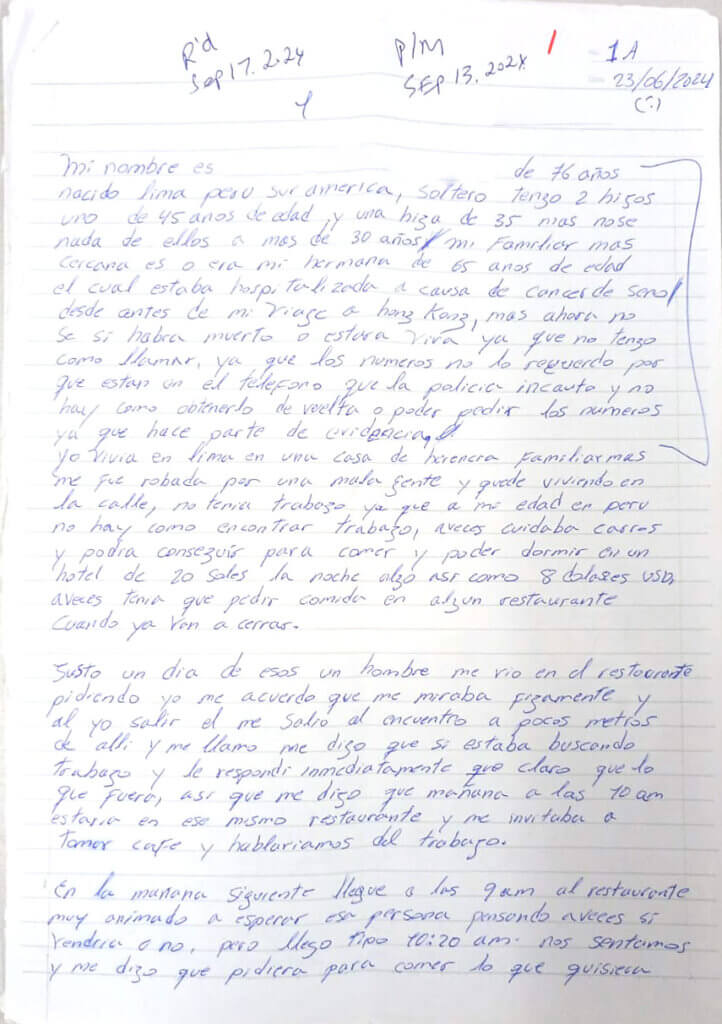 R'd
Sep 17. 2024
P/M
SEP 13. 2024
1A
23/06/2024
(:)
Mi nombre es de 76 años
nacido lima peru sur america, soltero tenzo 2 higos
uno de 45 anos de edad, y una higa de 35 mas nose
nada de ellos a mas de 30 años mi Familiar mas
cercana es o era mi hermana de 65 anos de edad
el cual estaba hospitalizada a causa de cancer de seno
desde antes de mi viage a honz Konz, mas ahora no
se si habra muerto o estara viva ya que no tenzo
como llamar, ya que los numeros no lo recuerdo por
que estan en el telefono que la policia incauto y no
hay como obtenerlo de vuelta o poder pedir los numeros
ya que hace parte de evidencia,
yo vivia en lima en una casa de herencia Familiar mas
me fue robada por una mala gente y quede viviendo en
la calle, no tenia trabago ya que a mi edad en peru
no hay como encontrar trabago, aveces cuidaba carros
y podia conseguir para comer y poder dormir en un
hotel de 20 soles la noche algo asi como 8 dolares USD,
aveces tenia que pedir comida en alzun restaurante
Cuando ya van a cerrar.
Susto un dia de esos un hombre me vio en el restaurante
pidiendo yo me acuerdo que me miraba fizamente y
al yo salir el me salio al encuentro a pocos metros
de alli y me llamo me dizo que si estaba buscando
trabago y le respondi inmediatamente que claro que lo
que fuera, asi que me dizo que mañana a las 10 am
estaria en ese mismo restaurante y me invitaba a
tomar cafe y hablariamos del trabago.
En la mañana siguiente llegue a las 9am al restaurante
muy animado a esperar esa persona pensando aveces si
vendria o no, pero llego tipo 10:20 am. nos sentamos
y me dizo que pidiera para comer lo que quisiera